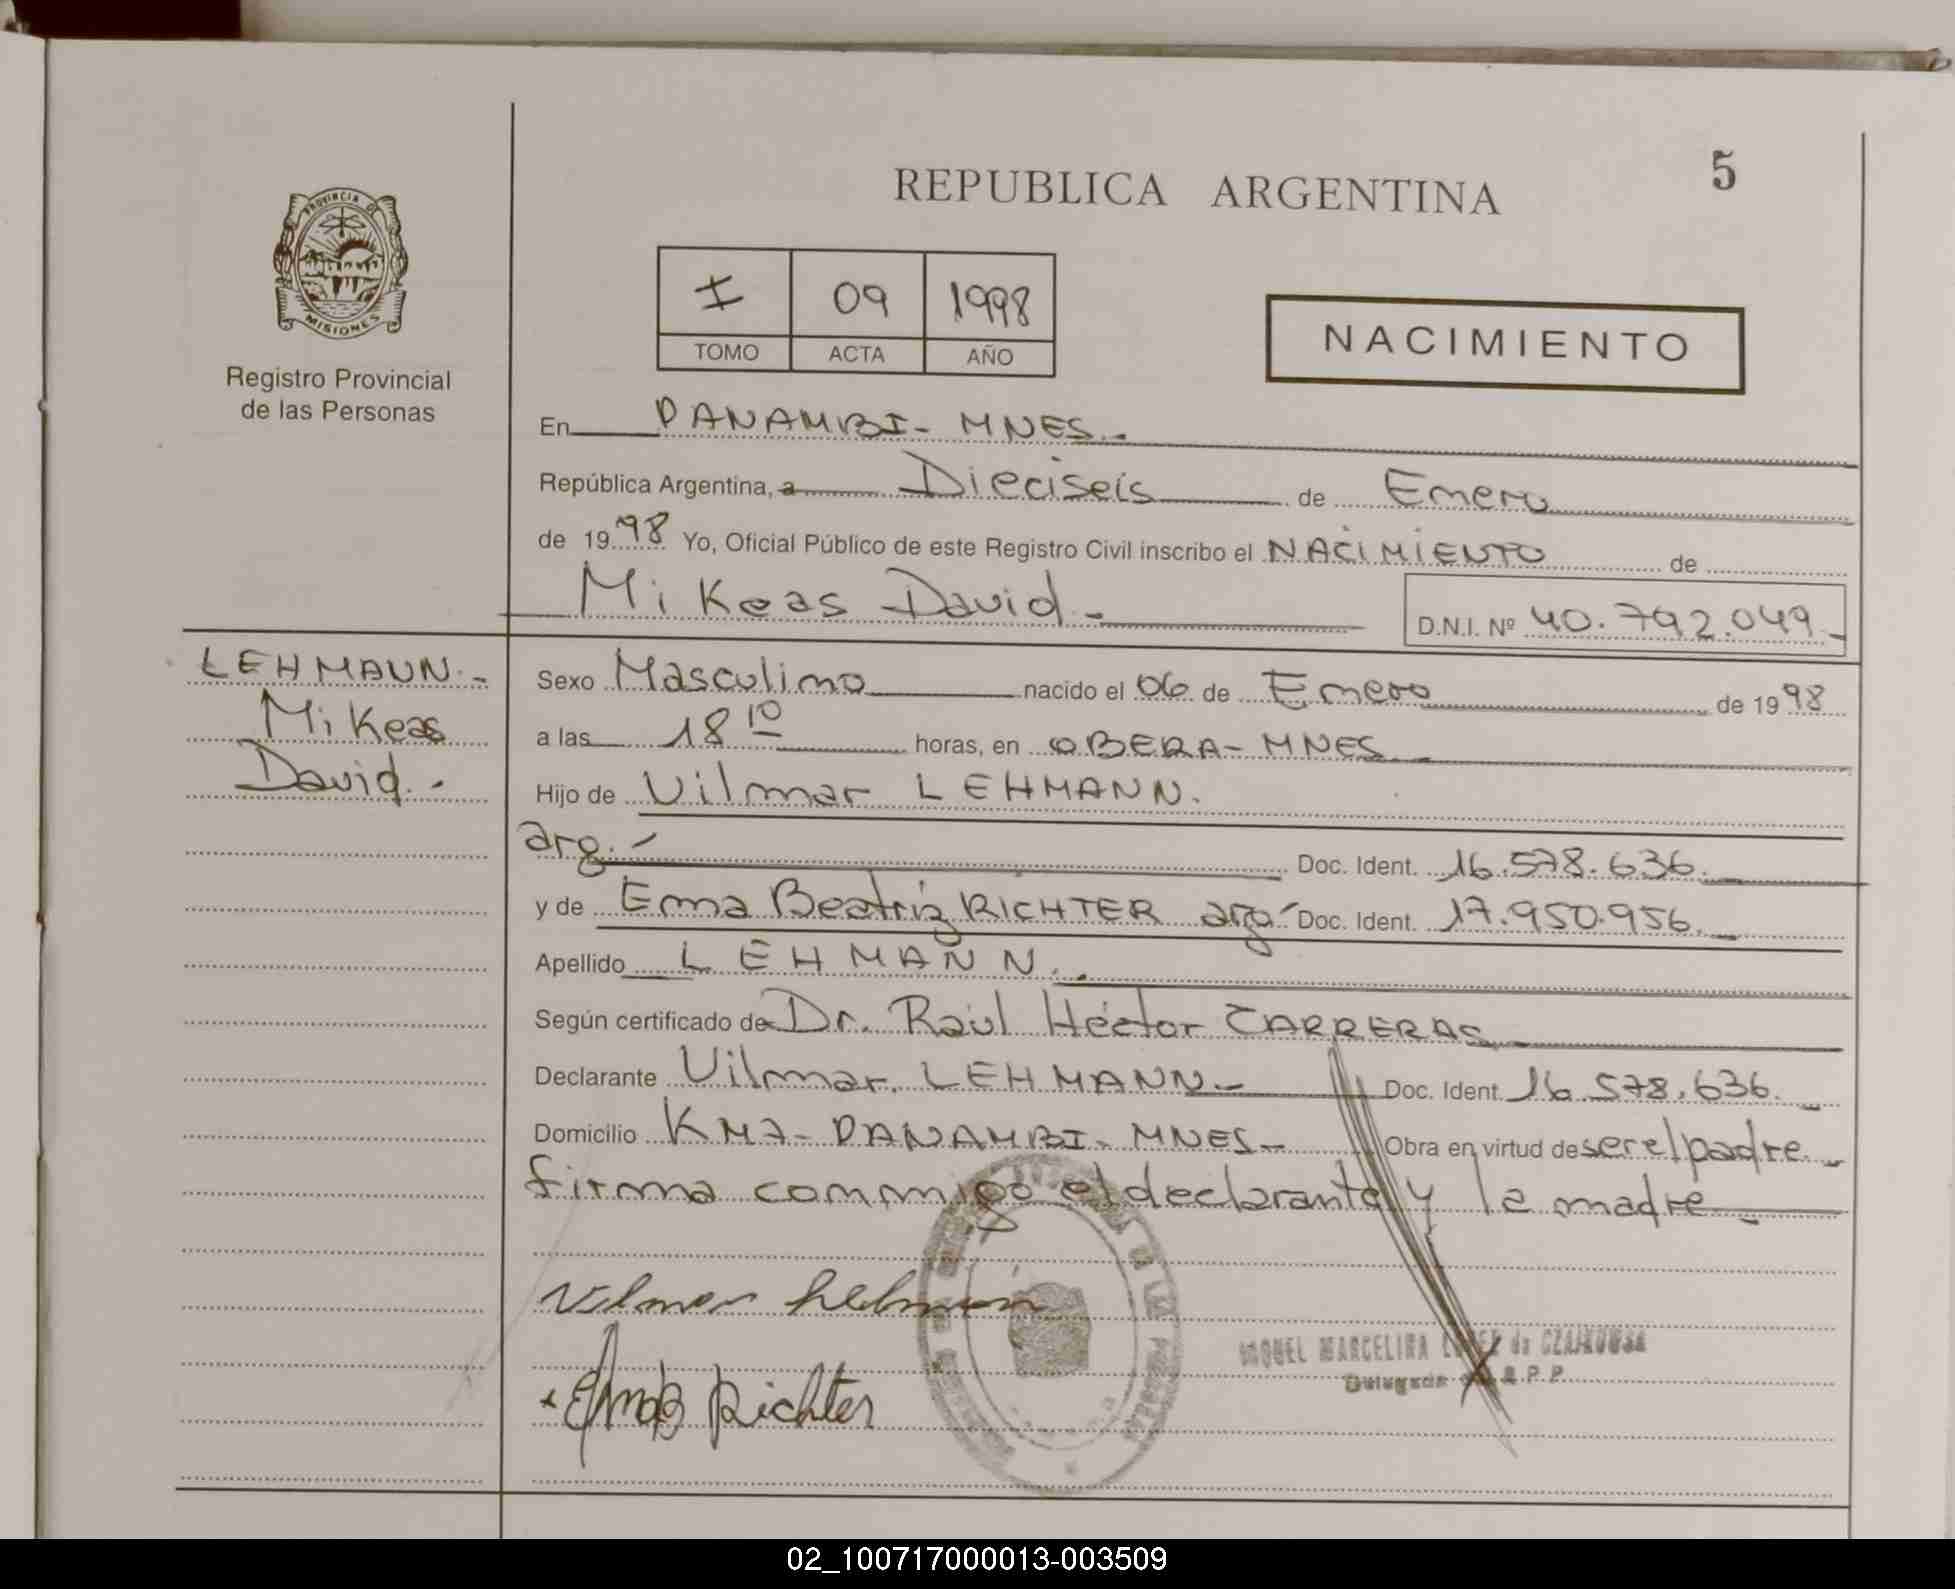 5
REPUBLICA ARGENTINA
PROVINCIA DE
MISIONES
Registro Provincial
de las Personas
I 09 1998
TOMO ACTA AÑO
NACIMIENTO
En PANAMBI - MNES.-
República Argentina, a Dieciseis de Enero
de 1998 Yo, Oficial Público de este Registro Civil inscribo el NACIMIENTO de
Mikeas David.-
D.N.I. Nº 40.792.049.-
LEHMANN.-
Mikeas
David.-
Sexo Masculino nacido el 06 de Enero de 1998
a las 18 10 horas, en OBERA - MNES.-
Hijo de Vilmar LEHMANN.
arg.- Doc. Ident. 16.578.636.-
y de Ema Beatriz RICHTER arg.- Doc. Ident. 17.950.956.-
Apellido LEHMANN.-
Según certificado de Dr. Raúl Héctor CARRERAS.-
Declarante Vilmar LEHMANN.- Doc. Ident. 16.578.636.-
Domicilio KM7 - PANAMBI - MNES.- Obra en virtud de ser el padre.-
firma conmigo el declarante y la madre.-
Vilmar
Ema B Richter
MARCELINA de
02_100717000013-003509